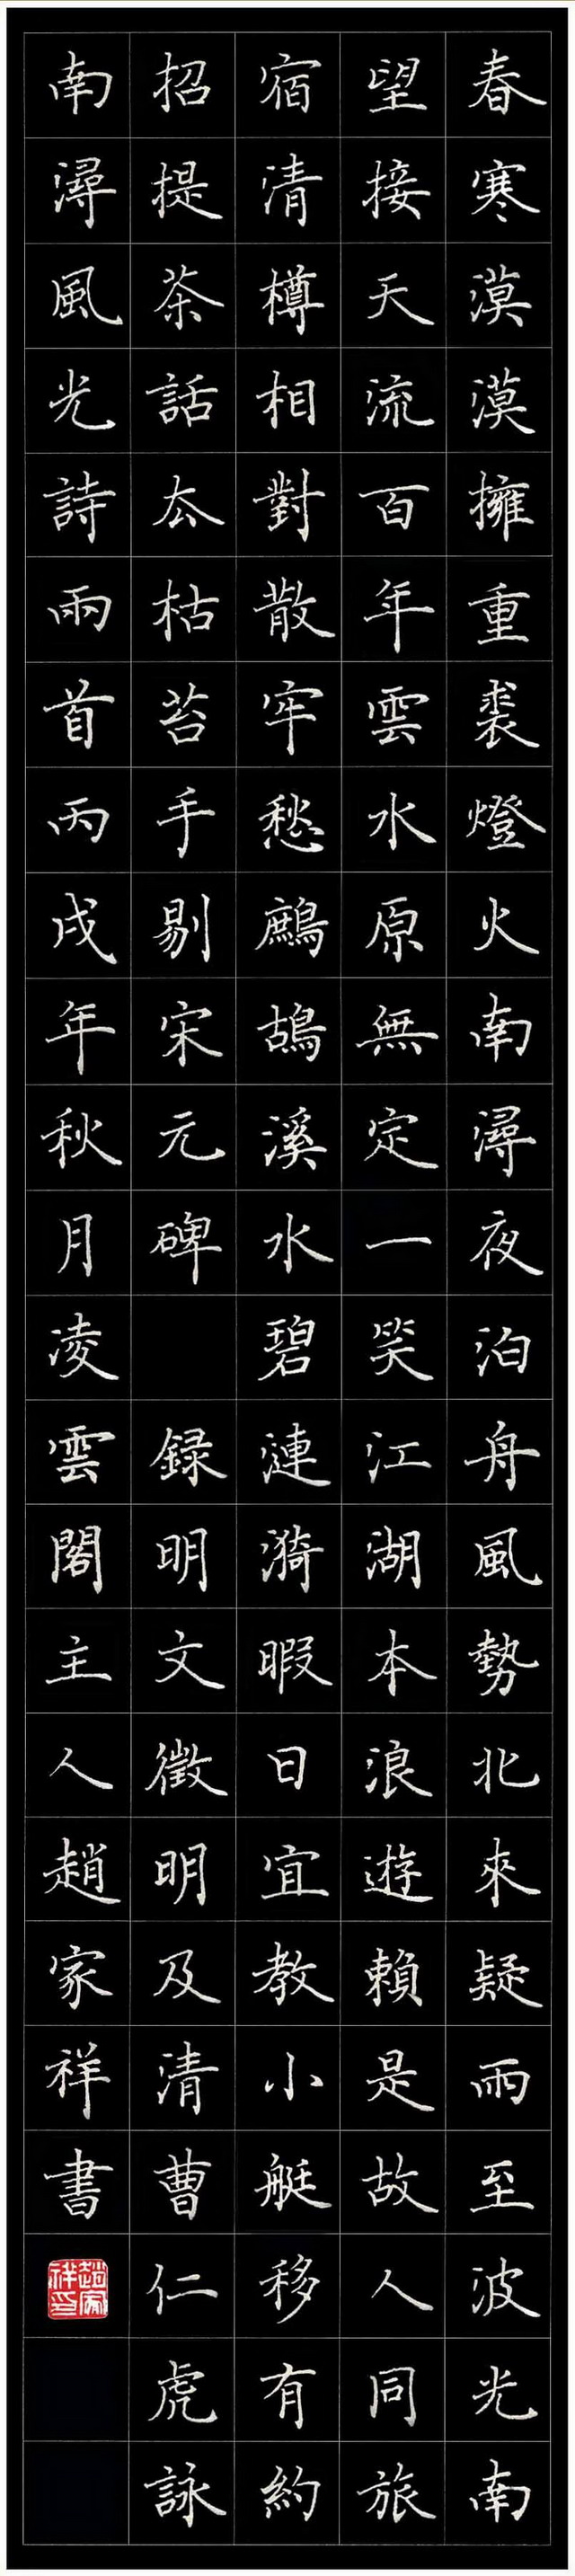 春寒漠漠擁重裘燈火南潯夜泊舟風勢北來疑雨至波光南
望接天流百年雲水原無定一笑江湖本浪遊賴是故人同旅
宿清樽相對散牢愁鷓鴣溪水碧漣漪暇日宜教小艇移有約
招提茶話厺枯苔手剔宋元碑 録明文徵明及清曹仁虎詠
南潯風光詩兩首丙戌年秋月凌雲閣主人趙家祥書
趙家祥印